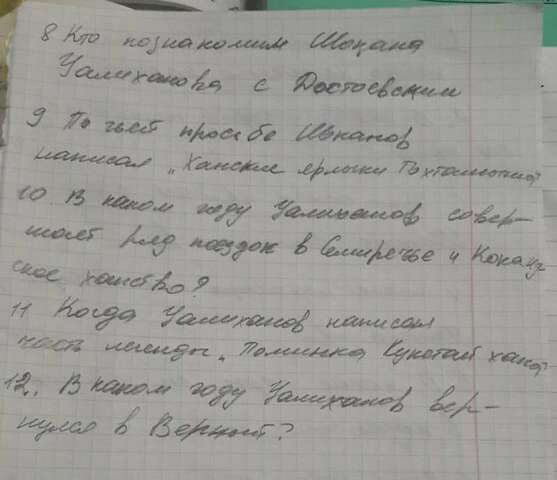 8 Кто познакомил Шокана
Уалиханова с Достоевским
9 По чьей просьбе Шоканов
написал „Ханские ярлыки Тохтамыша
10 В каком году Уалиханов совер-
шает ряд поездок в Семиречье и Коканд-
ское ханство?
11 Когда Уалиханов написал
часть легенды „Поминка Кукотай хана
12. В каком году Уалиханов вер-
нулся в Верный?